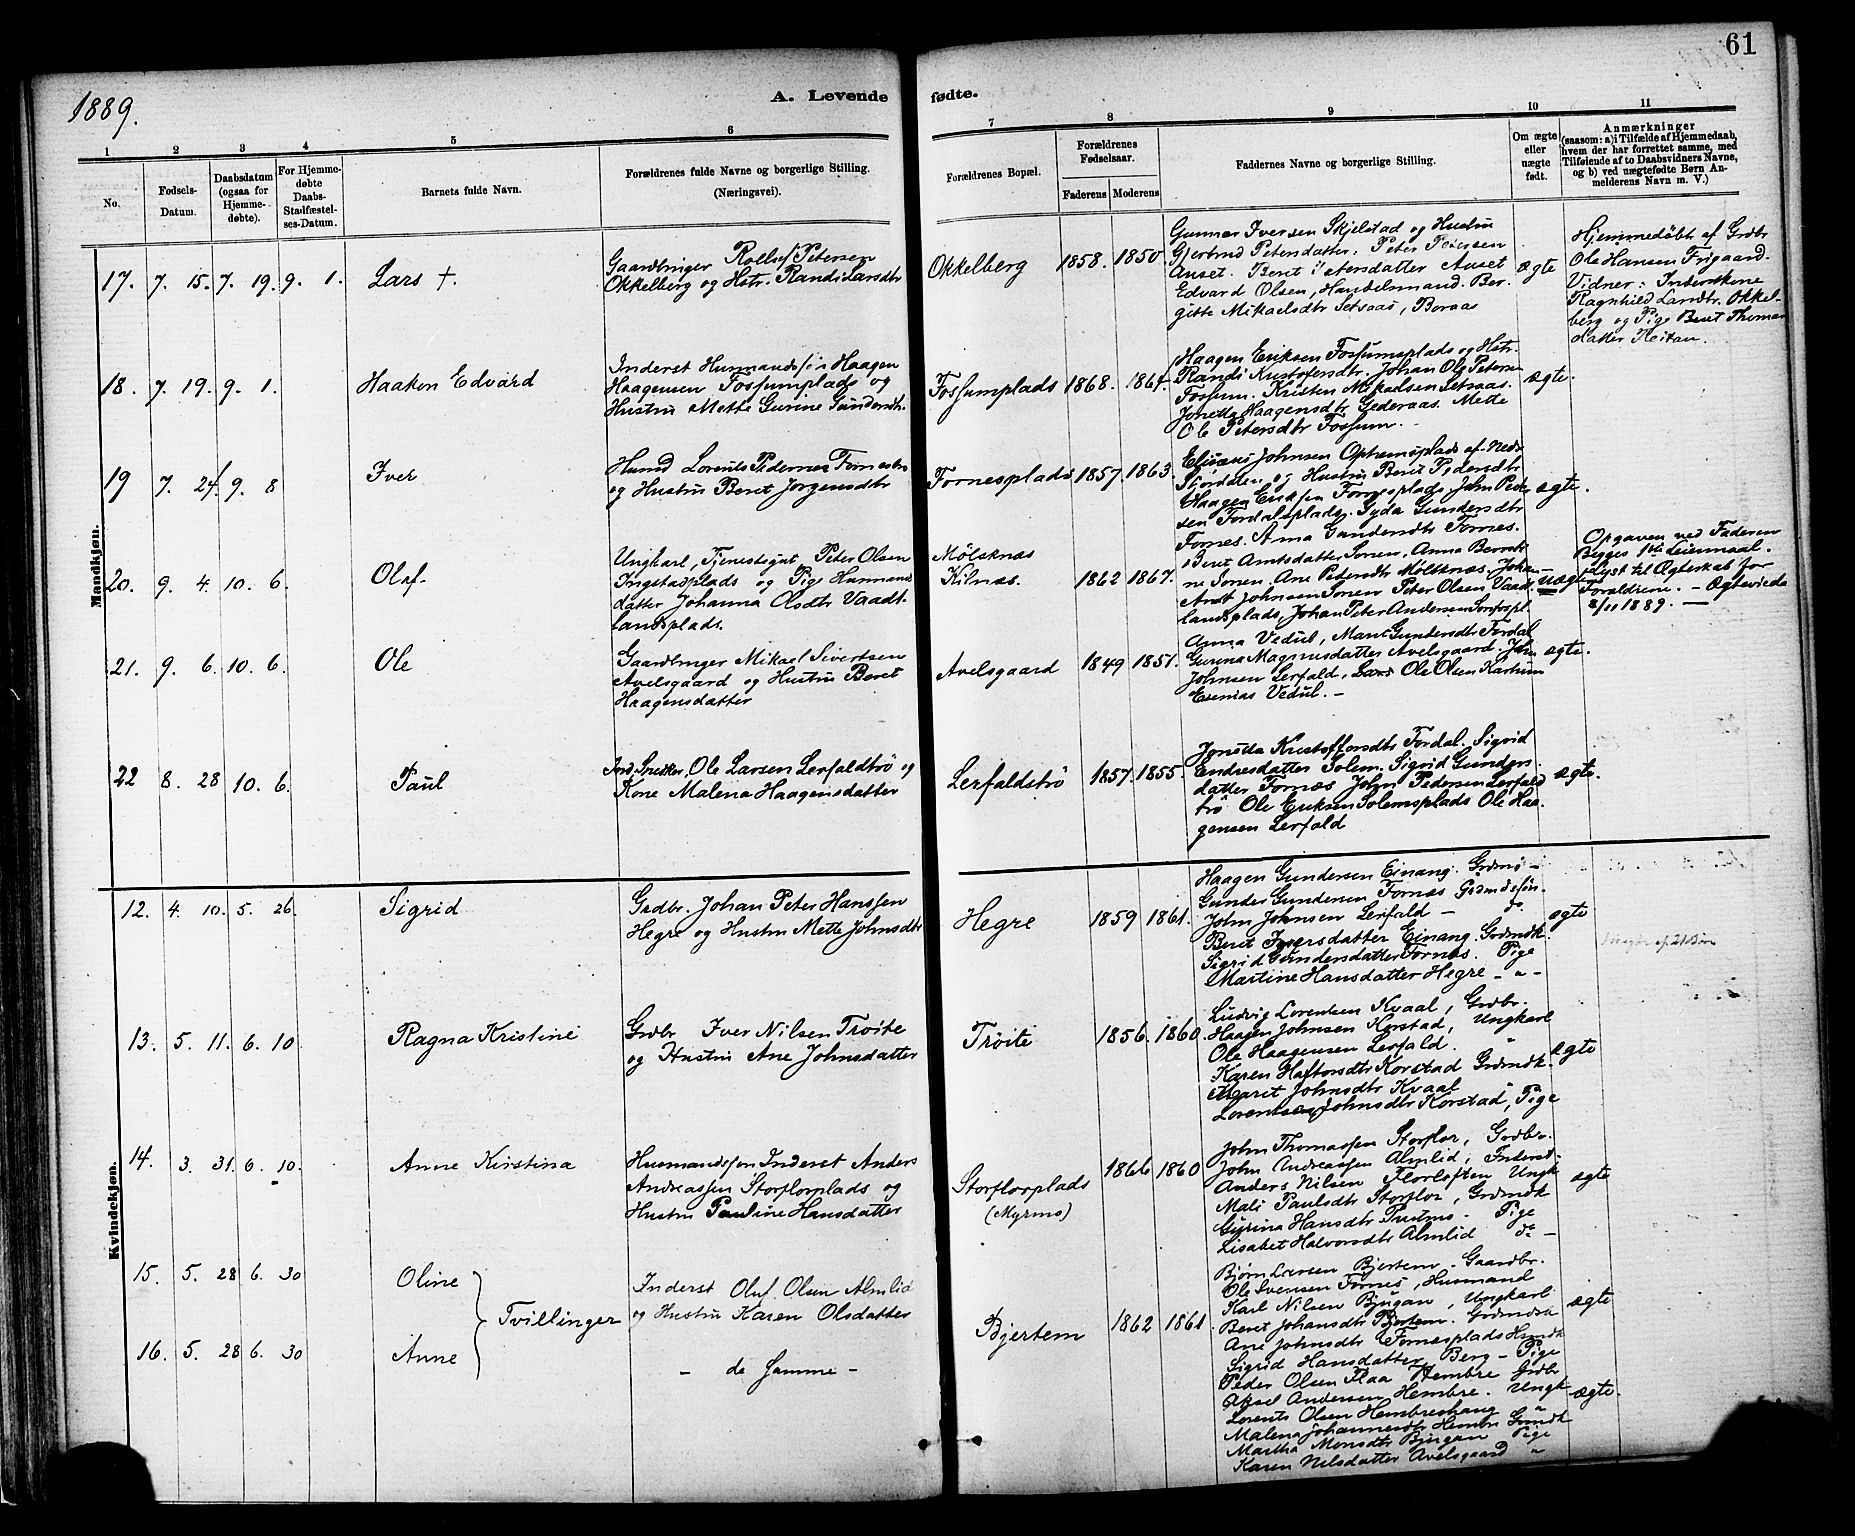 61
1889.
A. Levende fødte.
1 2 3 4 5 6 7 8 9 10 11
No.
Fødsels-Datum.
Daabsdatum (ogsaa for Hjemmedøbte).
For Hjemmedøbte Daabs-Stadfæstelses-Datum.
Barnets fulde Navn.
Forældrenes fulde Navne og borgerlige Stilling.
(Næringsvei).
Forældrenes Bopæl.
Forældrenes Fødselsaar.
Faderens Moderens
Faddernes Navne og borgerlige Stilling.
Om ægte eller uægte født.
Anmærkninger
(saasom: a) i Tilfælde af Hjemmedaab,
hvem der har forrettet samme, med
Tilføiende af to Daabsvidners Navne,
og b) ved uægtefødte Børn Anmelderens Navn m. V.)
Mandkjøn.
17. 7. 15. 7. 19. 9. 1. Lars †.
Gaardbruger Rollef Petersen
Okkelberg og Hstr. Randi Larsdtr
Okkelberg 1858. 1850.
Gunnar Iversen Skjelstad og Hustru
Gjertrud Petersdatter. Peter Petersen
Auset. Beret Petersdatter Auset
Edvard Olsen, Handelsmand. Ber-
gitte Mikaelsdtr Setsaas, Boraas
ægte
Hjemmedøbt af Grdbr
Ole Hansen Frigaard.
Vidner: Inderskone
Ragnhild Larsdtr. Okkel-
berg og Pige Beret Thomas
datter Reitan.
18. 7. 19. 9. 1. Haaken Edvard
Inderst Husmandssøn Haagen
Haagensen Fossumplads og
Hustru Mette Gurine Gundersdtr.
Fossumplads 1868. 1864.
Haagen Eriksen Fossumsplads og Hstr.
Randi Kristofersdtr. Johan Ol. Petersen
Fossum. Kristen Mikaelsen Setsaas.
Jonetta Haagensdtr Gederaas. Mette
Ol. Petersdtr Fossum.
ægte.
19 7. 24. 9. 8 Iver
Husmd Lorents Pedersen Fornesplads
og Hustru Beret Jørgensdtr
Fornesplads 1857. 1863.
Elisæus Johnsen Ophemsplads af Nedr
Stjørdalen og Hustru Beret Pedersdtr
Haagen Eriksen Fornesplads, John Peder-
sen Fordalsplads. Gunderdtr
Fornes. Anna Gundersdtr Fornes.
ægte.
20. 9. 4. 10. 6. Olaf.
Ungkarl, Tjenestegut Peter Olsen
Ingstadplads og Pige Husmands
datter Johanna Olsdtr Vaadt-
landsplads.
Mølsknæs
Kilnæs. 1862 1867.
Beret Arntsdatter Sonen, Anna Bernts
ne Sonen. Ane Petersdtr Mølsknæs. Johan
Arnt Johnsen Sonen Peter Olsen Vaadt-
landsplads, Johan Peter Andersen
uægte
Opgaven ved Faderen
Begges 1ste Leiermaal.
Lyst til Ægteskab for
Forældrene. – Ægteviede
8/11 1889. –
21. 9. 6. 10. 6. Ole
Gaardbruger Mikael Sivertsen
Avelsgaard og Hustru Beret
Haagensdatter
Avelsgaard 1849 1851.
Anna Vedul, Marit Gundersdtr Fordal
Gurina Magnusdatter Avelsgaard. John
Johnsen Lerfald, Lars Ole Olsen Kartum
Esenias Vedul. –
ægte.
22 8. 28 10. 6. Paul
Ind. Snedker, Ole Larsen Lerfaldtrø og
Kone Malena Haagensdatter
Lerfaldstrø 1857. 1855.
Jonetta Kristoffersdtr Fordal. Sigrid
Endresdatter Solem. Sigrid Gunders
datter Fornæs John Pedersen Lerfald
trø Ole Eriksen Solemsplads Ole Haa-
gensen Lerfald
ægte.
Kvindekjøn.
12. 4. 10. 5. 26. Sigrid
Grdbr. Johan Peter Hanssen
Hegre og Hustru Mette Johnsdtr
Hegre 1859 1861.
Haagen Gundersen Einang. Grdmd –
Gunder Gundersen Fornæs Grdmdssøn.
John Johnsen Lerfald – do.
Beret Iversdatter Einang. Grdmdk.
Sigrid Gundersdatter Fornæs. Pige
Martine Hansdatter Hegre – „ –
ægte
13. 5. 11. 6. 10 Ragna Kristine
Grdbr Iver Nilsen Trøite
og Hustru Ane Johnsdatter
Trøite 1856. 1860.
Ludvig Lorentsen Kvaal, Grdbr.
Haagen Johnsen Korstad, Ungkarl
Ole Haagensen Lerfald. „
Karen Haftorsdtr Korstad Grdmdk.
Marit Johnsdtr Kvaal „
Lorentse Johnsdtr Korstad, Pige
ægte
14. 3. 31. 6. 10. Anne Kirstina
Husmandssøn Inderst Anders
Andreassen Storflorplads og
Hustru Pauline Hansdatter
Storflorplads
(Myrmo) 1866 1860
John Thomassen Storflor, Grdbr.
John Andreassen Almlid, Inderst.
Anders Nilsen Florloften Ungk
Mali Paulsdtr Storflor, Grdmdk
Gurina Hansdtr Prestmo. Pige
Lisabet Halvorsdtr Almlid do –
ægte
15. 5. 28 6. 30 Oline
16. 5. 28 6. 30 Anne
Tvillinger
Inderst Oluf Olsen Almlid
og Hustru Karen Olsdatter
– de samme –
Bjertem 1862 1861.
Bjørn Larsen Bjertem – Gaardbr.
Ole Svensen Fornes, Husmand
Karl Nilsen Bjugan, Ungkarl
Beret Johansdtr Bjertem. Grdmdsk
Ane Johnsdtr Fornesplads Husmdk
Sigrid Hansdatter Berg – Pige
Peder Olsen Flaa Hembre Grdbr
Aksel Andersen Hembre. Ungk
Lorents Olsen Hembreshaug „
Malena Johannesdtr Hembre Grmdk
Martha Monsdtr Bjugan Pige
Karen Nilsdatter Avelsgaard „
ægte
ægte.